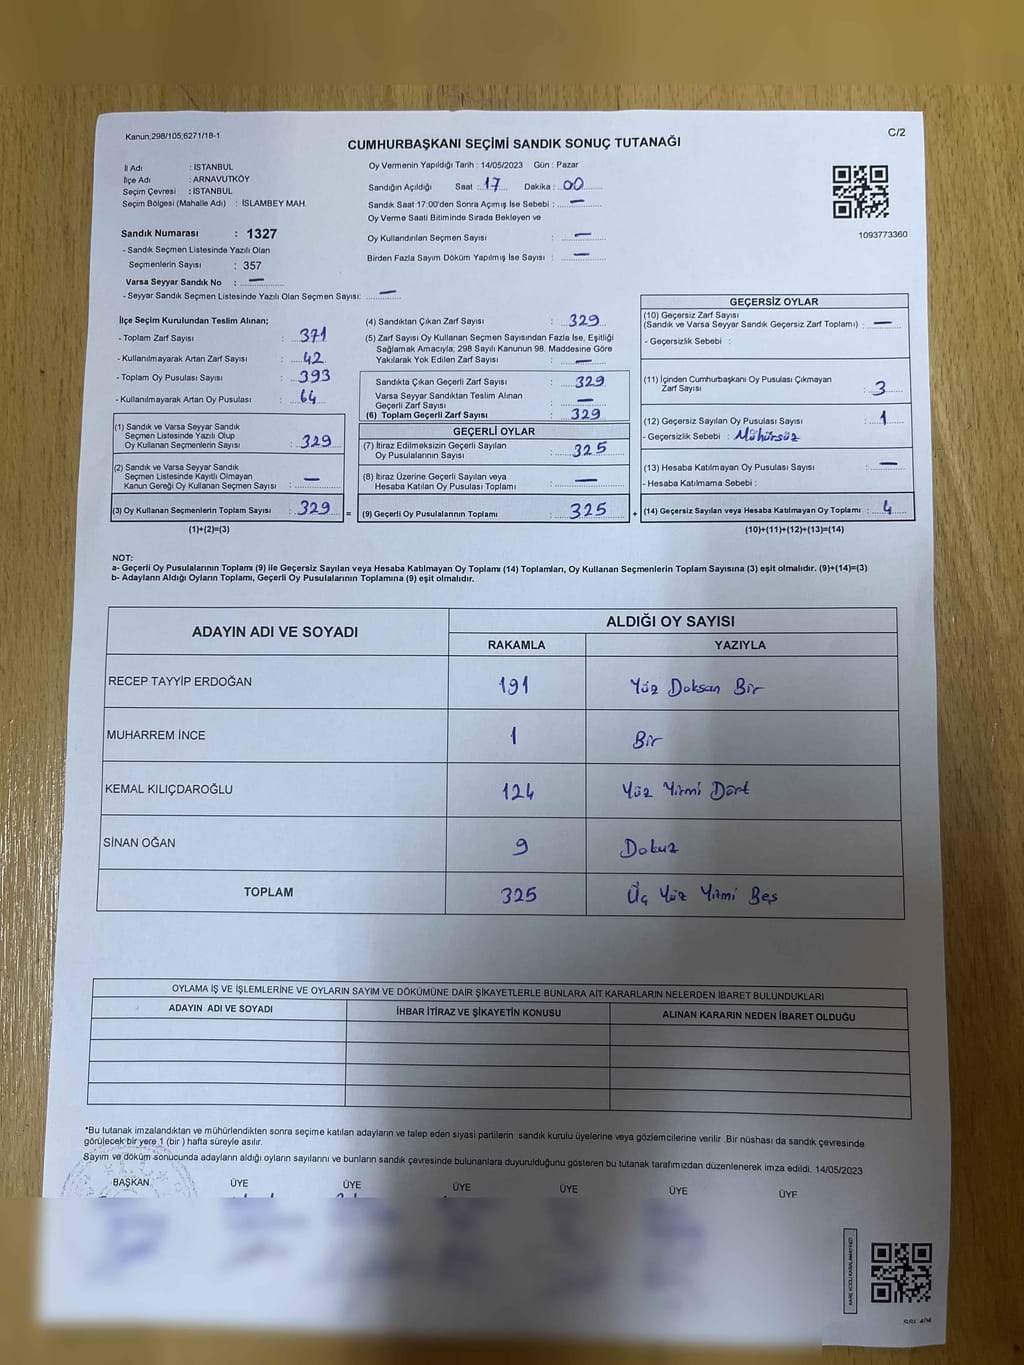 Kanun;298/105,6271/18-1
C/2
CUMHURBAŞKANI SEÇİMİ SANDIK SONUÇ TUTANAĞI
İl Adı : İSTANBUL
İlçe Adı : ARNAVUTKÖY
Seçim Çevresi : İSTANBUL
Seçim Bölgesi (Mahalle Adı) : İSLAMBEY MAH.
Sandık Numarası : 1327
- Sandık Seçmen Listesinde Yazılı Olan
Seçmenlerin Sayısı : 357
Varsa Seyyar Sandık No : —
- Seyyar Sandık Seçmen Listesinde Yazılı Olan Seçmen Sayısı: —
Oy Vermenin Yapıldığı Tarih : 14/05/2023 Gün : Pazar
Sandığın Açıldığı Saat : 17 Dakika : 00
Sandık Saat 17:00'den Sonra Açımış İse Sebebi : —
Oy Verme Saati Bitiminde Sırada Bekleyen ve
Oy Kullandırılan Seçmen Sayısı : —
Birden Fazla Sayım Döküm Yapılmış İse Sayısı : —
1093773360
İlçe Seçim Kurulundan Teslim Alınan;
- Toplam Zarf Sayısı : 371
- Kullanılmayarak Artan Zarf Sayısı : 42
- Toplam Oy Pusulası Sayısı : 393
- Kullanılmayarak Artan Oy Pusulası : 64
(1) Sandık ve Varsa Seyyar Sandık
Seçmen Listesinde Yazılı Olup
Oy Kullanan Seçmenlerin Sayısı : 329
(2) Sandık ve Varsa Seyyar Sandık
Seçmen Listesinde Kayıtlı Olmayan
Kanun Gereği Oy Kullanan Seçmen Sayısı : —
(3) Oy Kullanan Seçmenlerin Toplam Sayısı : 329 =
(1)+(2)=(3)
(4) Sandıktan Çıkan Zarf Sayısı : 329
(5) Zarf Sayısı Oy Kullanan Seçmen Sayısından Fazla İse, Eşitliği
Sağlamak Amacıyla; 298 Sayılı Kanunun 98. Maddesine Göre
Yakılarak Yok Edilen Zarf Sayısı : —
Sandıkta Çıkan Geçerli Zarf Sayısı : 329
Varsa Seyyar Sandıktan Teslim Alınan
Geçerli Zarf Sayısı : —
(6) Toplam Geçerli Zarf Sayısı : 329
GEÇERLİ OYLAR
(7) İtiraz Edilmeksizin Geçerli Sayılan
Oy Pusulalarının Sayısı : 325
(8) İtiraz Üzerine Geçerli Sayılan veya
Hesaba Katılan Oy Pusulası Toplamı : —
(9) Geçerli Oy Pusulalarının Toplamı : 325 +
GEÇERSİZ OYLAR
(10) Geçersiz Zarf Sayısı
(Sandık ve Varsa Seyyar Sandık Geçersiz Zarf Toplamı) : —
- Geçersizlik Sebebi :
(11) İçinden Cumhurbaşkanı Oy Pusulası Çıkmayan
Zarf Sayısı : 3
(12) Geçersiz Sayılan Oy Pusulası Sayısı : 1
- Geçersizlik Sebebi : Mühürsüz
(13) Hesaba Katılmayan Oy Pusulası Sayısı : —
- Hesaba Katılmama Sebebi :
(14) Geçersiz Sayılan veya Hesaba Katılmayan Oy Toplamı : 4
(10)+(11)+(12)+(13)=(14)
NOT:
a- Geçerli Oy Pusulalarının Toplamı (9) ile Geçersiz Sayılan veya Hesaba Katılmayan Oy Toplamı (14) Toplamları, Oy Kullanan Seçmenlerin Toplam Sayısına (3) eşit olmalıdır. (9)+(14)=(3)
b- Adayların Aldığı Oyların Toplamı, Geçerli Oy Pusulalarının Toplamına (9) eşit olmalıdır.
ADAYIN ADI VE SOYADI
ALDIĞI OY SAYISI
RAKAMLA YAZIYLA
RECEP TAYYİP ERDOĞAN 191 Yüz Doksan Bir
MUHARREM İNCE 1 Bir
KEMAL KILIÇDAROĞLU 124 Yüz Yirmi Dört
SİNAN OĞAN 9 Dokuz
TOPLAM 325 Üç Yüz Yirmi Beş
OYLAMA İŞ VE İŞLEMLERİNE VE OYLARIN SAYIM VE DÖKÜMÜNE DAİR ŞİKAYETLERLE BUNLARA AİT KARARLARIN NELERDEN İBARET BULUNDUKLARI
ADAYIN ADI VE SOYADI İHBAR İTİRAZ VE ŞİKAYETİN KONUSU ALINAN KARARIN NEDEN İBARET OLDUĞU
*Bu tutanak imzalandıktan ve mühürlendikten sonra seçime katılan adayların ve talep eden siyasi partilerin sandık kurulu üyelerine veya gözlemcilerine verilir .Bir nüshası da sandık çevresinde
görülecek bir yere 1 (bir ) hafta süreyle asılır.
Sayım ve döküm sonucunda adayların aldığı oyların sayılarını ve bunların sandık çevresinde bulunanlara duyurulduğunu gösteren bu tutanak tarafımızdan düzenlenerek imza edildi. 14/05/2023
BAŞKAN ÜYE ÜYE ÜYE ÜYE ÜYE ÜYE